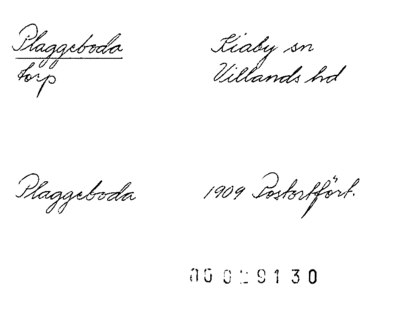 Plaggeboda Kiaby sn
torp Villands hd
Plaggeboda 1909 Postortfört.